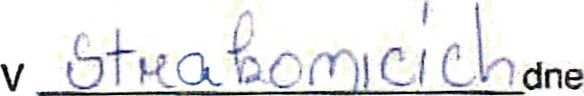 V Strakonicích dne